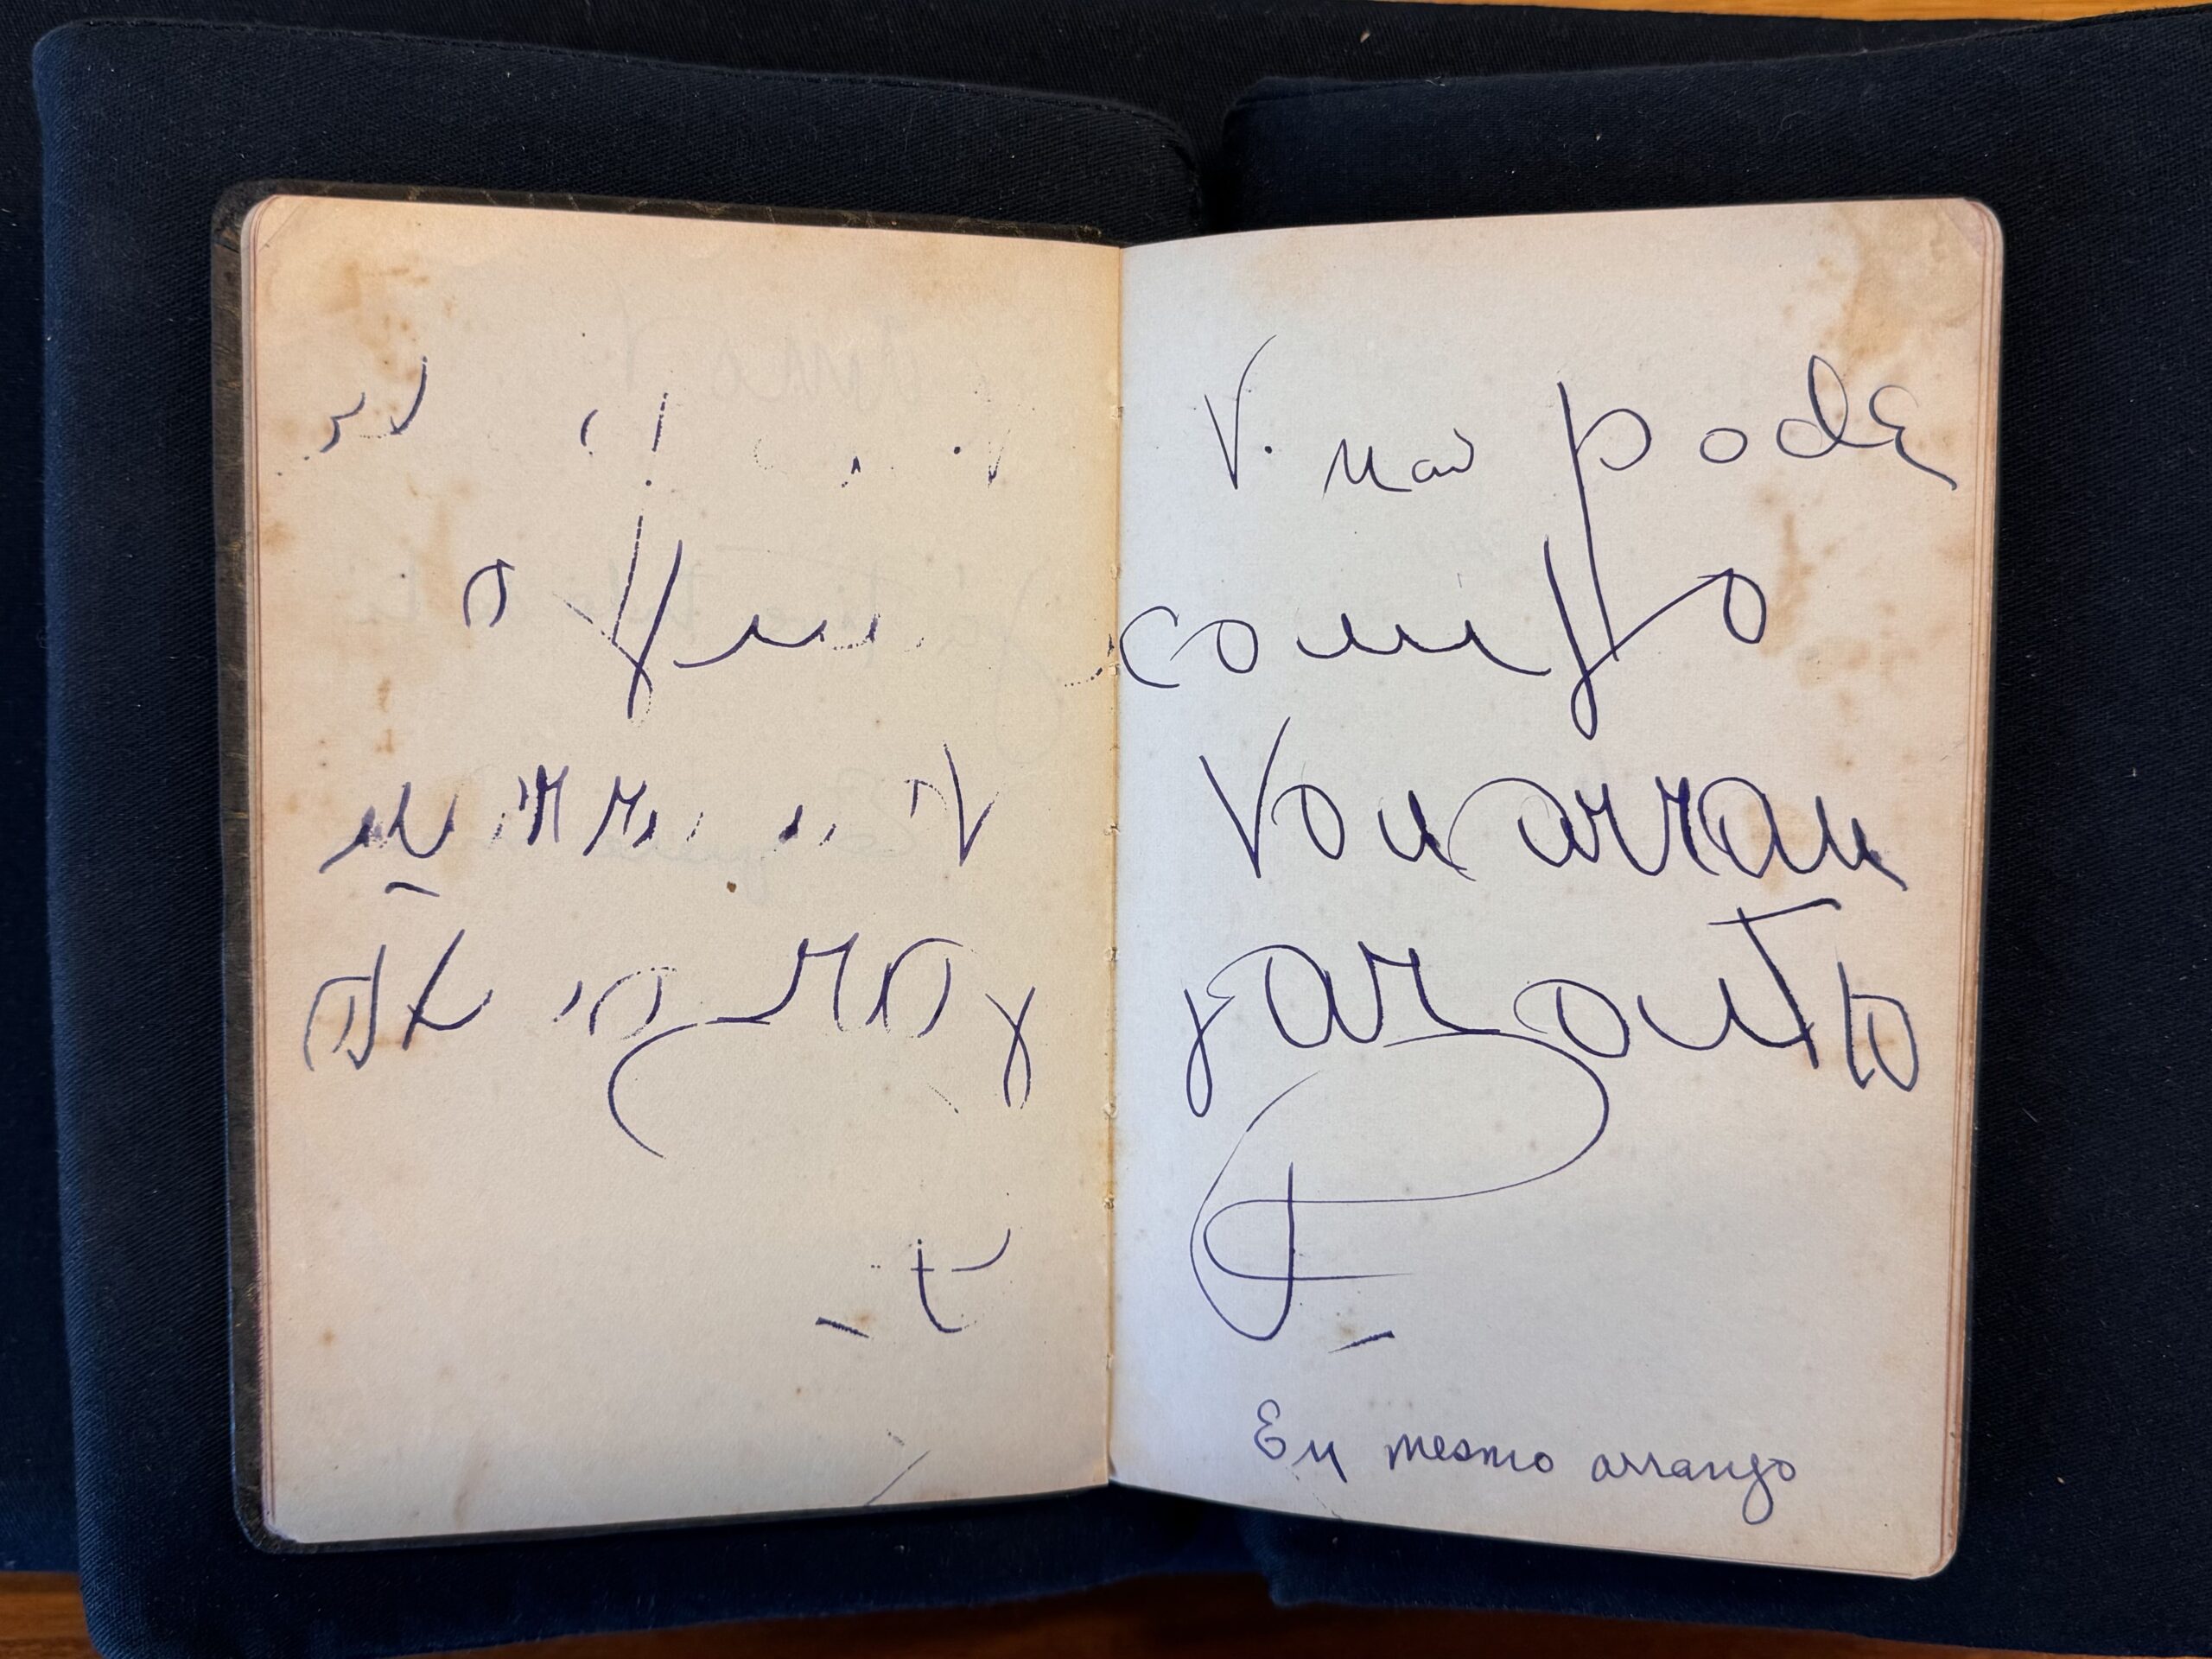 V. não pode
comigo
Vou arran
jar outro
Eu mesmo arranjo